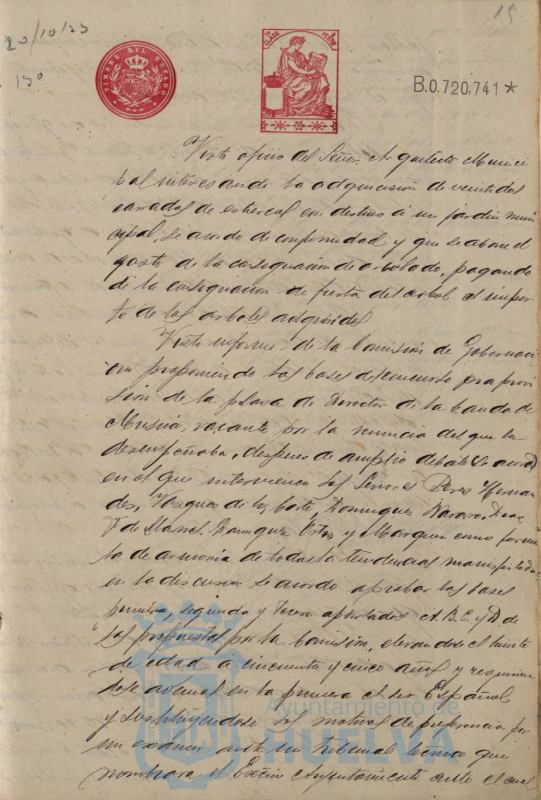 20/10/23
15
15º
TIMBRE DEL ESTADO
CLASE
B.0.720.741*
Visto oficio del Señor Arquitecto Munici
pal interesando la adquisición de veintidos
carradas de estiercol con destino á un jardin muni
cipal, se acordó de conformidad y que se abone el
gasto de la consignación de arbolado, pagando
de la consignacion de fiesta del arbol el impor
te de los arboles adquiridos
Visto informe de la Comisión de Gobernaci
ón proponiendo las bases del concurso para provi
sión de la plaza de Director de la banda de
Musica, vacante por la renuncia del que la
desempeñaba, despues de amplio debate
en el que intervienen los Señores Perez Hernan
dez, Vazquez de la Corte, Dominguez Navarro,
Dominguez Ortiz y Marquez como formu
la de armonia de todas las tendencias manifestadas
en la discusion se acordó aprobar las bases
primera, segunda y tercera apartados A.B.C. y D de
las propuestas por la Comisión, elevandose el limite
de edad a cincuenta y cinco años y requirien
dose ademas en la primera el ser Español
y sustituyendose los motivos de preferencia por
un examen ante un Tribunal tecnico que
nombrara el Excmo Ayuntamiento ante el cual
Ayuntamiento de
HUELVA